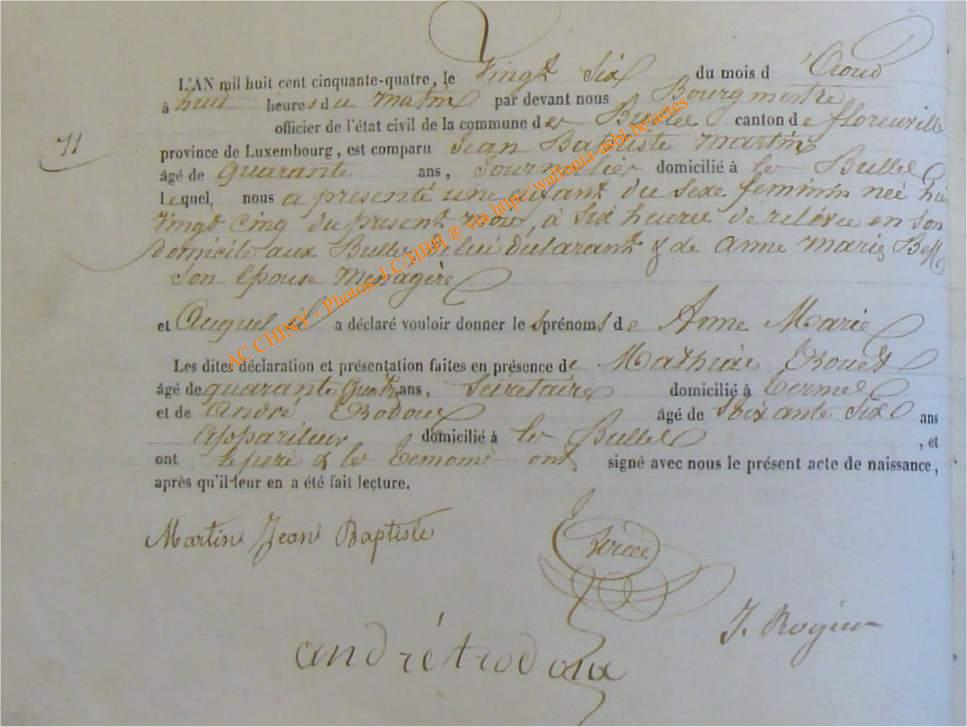 L'AN mil huit cent cinquante-quatre, le Vingt Six du mois d'Aoud
à huit heures du matin par devant nous Bourgmestre
officier de l'état civil de la commune des Bulles canton de florenville
11
province de Luxembourg, est comparu Jean Baptiste Martin
âgé de Quarante ans, Journalier domicilié à les Bulles
Lequel, nous a presenté une enfant du sexe feminin née
Vingt Cinq du present mois, à Six heures de relévée en son
Domicile aux Bulles de lui Déclarant & de Anne Marie
son épouse Menagère
et Auquel il a déclaré vouloir donner les prénoms de Anne Marie
Les dites déclaration et présentation faites en présence de Mathieu
âgé de quarante ans, Secretaire domicilié à Termes
et de André Trodoux âgé de Soixante Six ans
Appariteur domicilié à les Bulles , et
ont le pere & les temoins ont signé avec nous le présent acte de naissance,
après qu'il leur en a été fait lecture.
Martin Jean Baptiste
J. Rogier
andrétrodoux
AC CHINY - Photos J.C/HBH ® via http://wallonia-asbl.be/actes